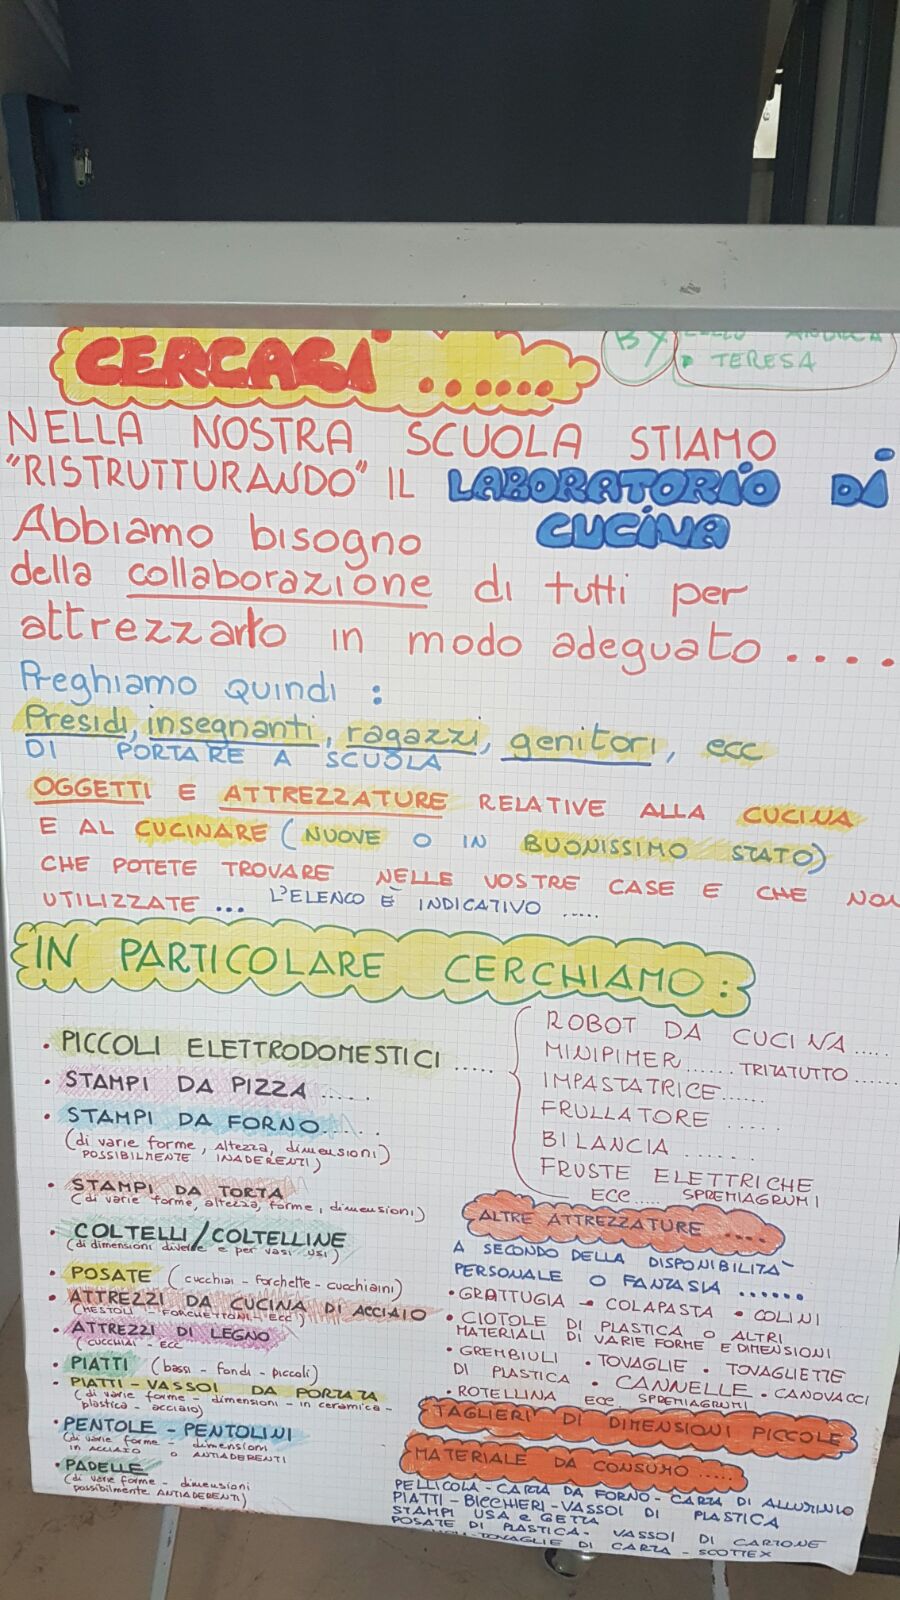 CERCASI ......
BY
TERESA
NELLA NOSTRA SCUOLA STIAMO
"RISTRUTTURANDO" IL LABORATORIO DI
CUCINA
Abbiamo bisogno
della collaborazione di tutti per
attrezzarlo in modo adeguato ....
Preghiamo quindi :
Presidi, insegnanti, ragazzi, genitori, ecc
DI PORTARE A SCUOLA
OGGETTI E ATTREZZATURE RELATIVE ALLA CUCINA
E AL CUCINARE (NUOVE O IN BUONISSIMO STATO)
CHE POTETE TROVARE NELLE VOSTRE CASE E CHE NON
UTILIZZATE ... L'ELENCO È INDICATIVO .....
IN PARTICOLARE CERCHIAMO :
• PICCOLI ELETTRODOMESTICI .....
ROBOT DA CUCINA .....
MINIPIMER ...... TRITATUTTO ......
IMPASTATRICE ......
FRULLATORE ......
BILANCIA ......
FRUSTE ELETTRICHE
ECC ..... SPREMIAGRUMI
• STAMPI DA PIZZA .....
• STAMPI DA FORNO .....
(di varie forme, altezza, dimensioni)
POSSIBILMENTE INADERENTI)
• STAMPI DA TORTA
(di varie forme, altezza, forme, dimensioni)
• COLTELLI/COLTELLINE
(di dimensioni diverse e per vari usi)
• POSATE (cucchiai - forchette - cucchiaini)
• ATTREZZI DA CUCINA DI ACCIAIO
(MESTOLI - FORCHETTONI ECC)
• ATTREZZI DI LEGNO
(CUCCHIAI - ECC
• PIATTI (bassi - fondi - piccoli)
• PIATTI - VASSOI DA PORTATA
(di varie forme - dimensioni - in ceramica -
plastica - acciaio)
• PENTOLE - PENTOLINI
(di varie forme - dimensioni
in ACCIAIO o ANTIADERENTI
• PADELLE
(di varie forme - dimensioni
possibilmente ANTIADERENTI)
ALTRE ATTREZZATURE ....
A SECONDO DELLA DISPONIBILITA'
PERSONALE O FANTASIA ......
• GRATTUGIA • COLAPASTA • COLINI
• CIOTOLE DI PLASTICA O ALTRI
MATERIALI DI VARIE FORME E DIMENSIONI
• GREMBIULI • TOVAGLIE • TOVAGLIETTE
DI PLASTICA • CANNELLE • CANOVACCI
• ROTELLINA ECC. SPREMIAGRUMI
TAGLIERI DI DIMENSIONI PICCOLE
MATERIALE DA CONSUMO .....
PELLICOLA - CARTA DA FORNO - CARTA DI ALLUMINIO
PIATTI - BICCHIERI - VASSOI DI PLASTICA
STAMPI USA e GETTA
POSATE DI PLASTICA - VASSOI DI CARTONE
TOVAGLIE DI CARTA - SCOTTEX